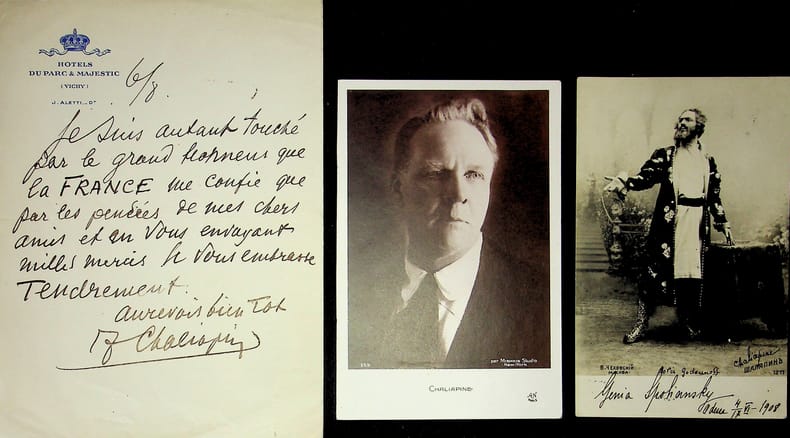 HOTELS
DU PARC & MAJESTIC
(VICHY)
J. ALETTI_Dr
6/8
Je suis autant touché
par le grand honneur que
la FRANCE me confie que
par les pensées de mes chers
amis et en vous envoyant
milles mercis je vous embrasse
Tendrement.
aurevois bien tot
F Chaliapin
phot Mishkin Studio
New-York
CHALIAPINE
AN
PARIS
В. ЧЕХОВСКІЙ
МОСКВА
Boris Godounoff
Chaliapine
ШАЛЯПИНЪ
Genia Spoliansky
1908